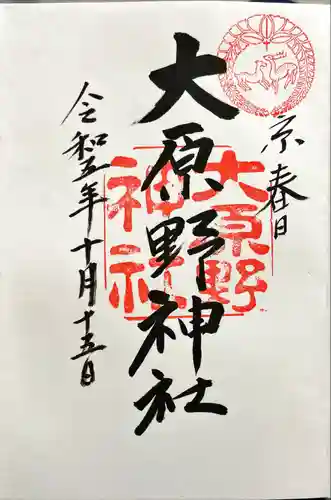 京春日
大原野神社
大原野
神社
令和五年十月十五日